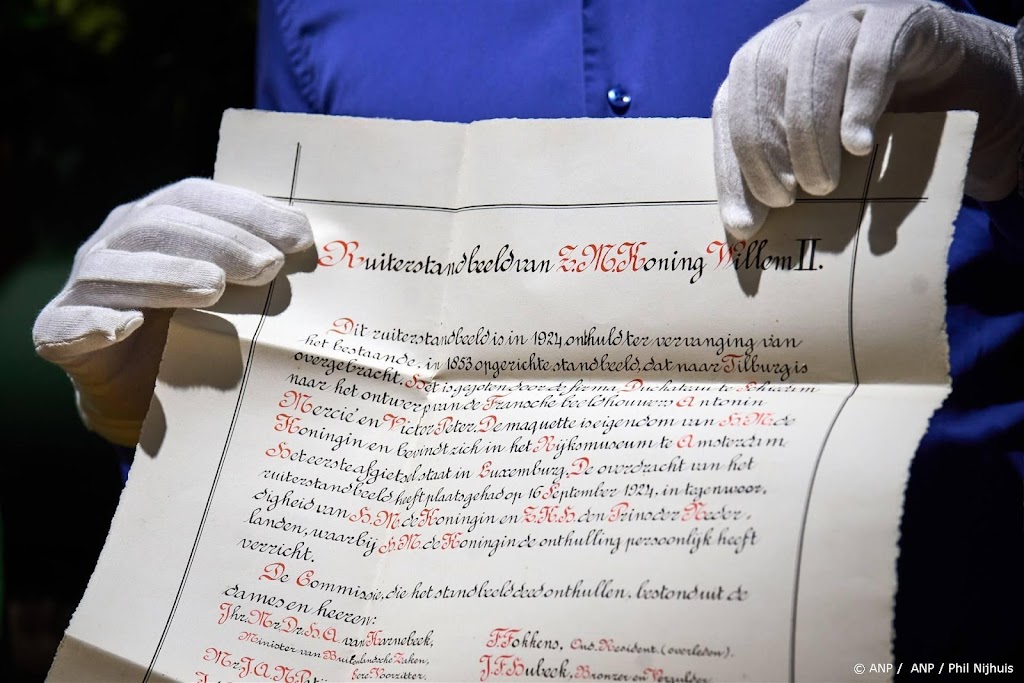 Ruiterstandbeeld van Z.M. Koning Willem II.
Dit ruiterstandbeeld is in 1924 onthuld ter vervanging van
het bestaande, in 1853 opgerichte standbeeld, dat naar Tilburg is
overgebracht. Het is gegoten door de firma Duchateau te Schiedam
naar het ontwerp van de Fransche beeldhouwers Antonin
Mercié en Victor Peter. De maquette is eigendom van H.M. de
Koningin en bevindt zich in het Rijksmuseum te Amsterdam
Het eerste afgietsel staat in Luxemburg. De overdracht van het
ruiterstandbeeld heeft plaats gehad op 16 September 1924, in tegenwoor,
digheid van H.M. de Koningin en Z.K.H. den Prins der Neder,
landen, waarbij H.M. de Koningin de onthulling persoonlijk heeft
verricht.
De Commissie, die het standbeeld deed onthullen, bestond uit de
dames en heeren:
Jhr. Mr. Dr. H.A. van Karnebeek,
Minister van Buitenlandsche Zaken,
Eere Voorzitter.
Mr. J.A.N.
F. Fokkens, Oud. Resident. (overleden).
J.F. Hubeck, Bronzer en Vergulder
© ANP / ANP / Phil Nijhuis